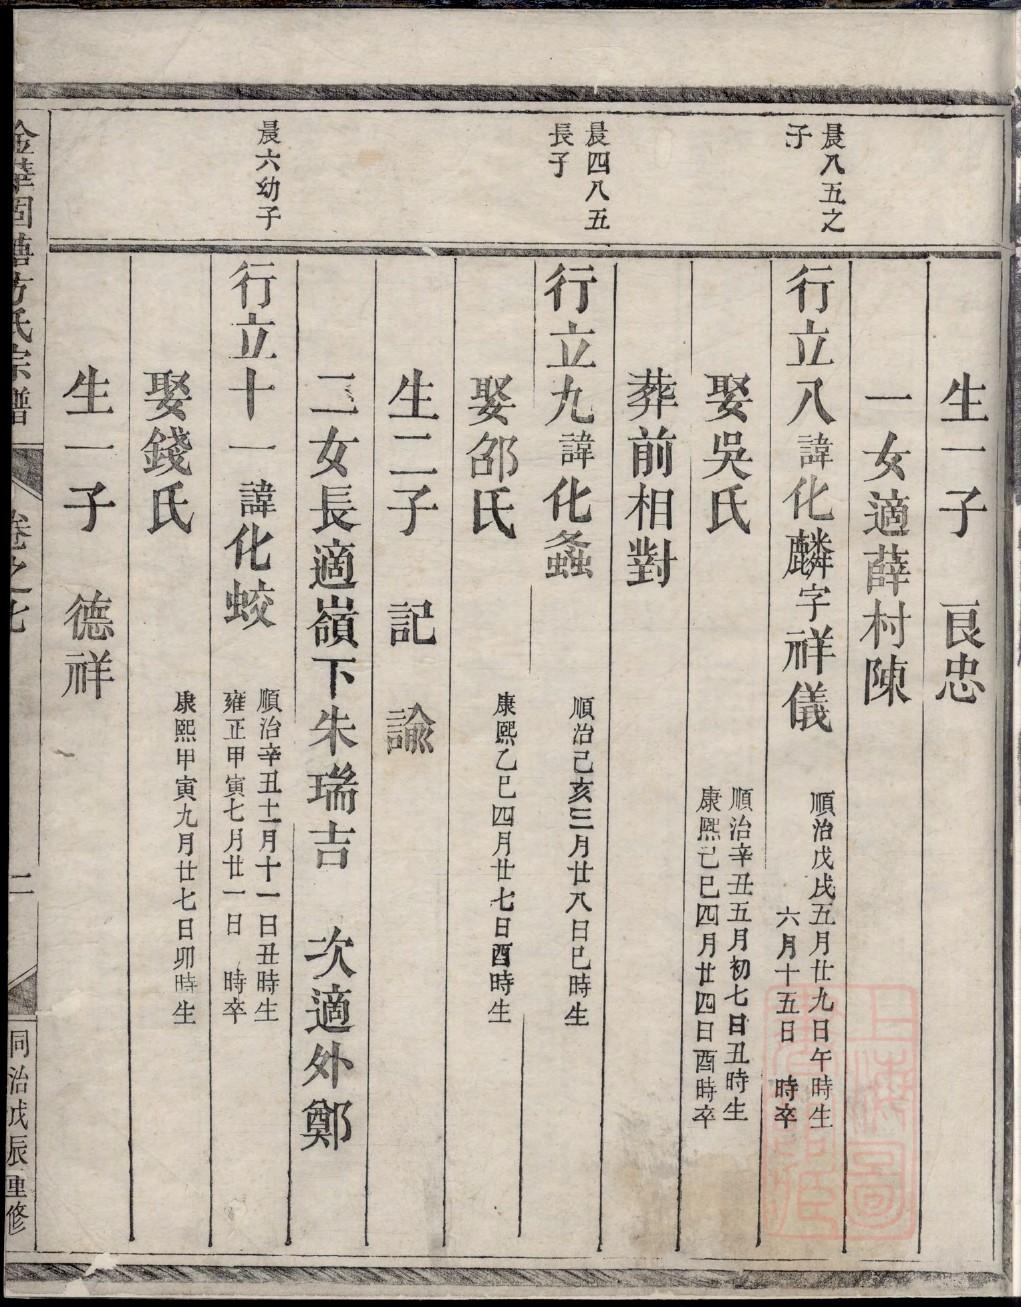 生一子　良忠
一女適薛村陳
晨八五之
子
行立八諱化麟字祥儀
順治戊戌五月廿九日午時生
六月十五日　時卒
娶吳氏
順治辛丑五月初七日丑時生
康熙己巳四月廿四日酉時卒
葬前相對
晨四八五
長子
行立九諱化螽
順治己亥三月廿八日巳時生
娶邵氏
康熙乙巳四月廿七日酉時生
生二子　記　諭
二女長適嶺下朱瑞吉　次適外鄭
晨六幼子
行立十一諱化蛟
順治辛丑十一月十一日丑時生
雍正甲寅七月廿一日　時卒
娶錢氏
康熙甲寅九月廿七日卯時生
生一子　德祥
金華固塘方氏宗譜
卷之七
二
同治戊辰重修
上海圖
書館藏